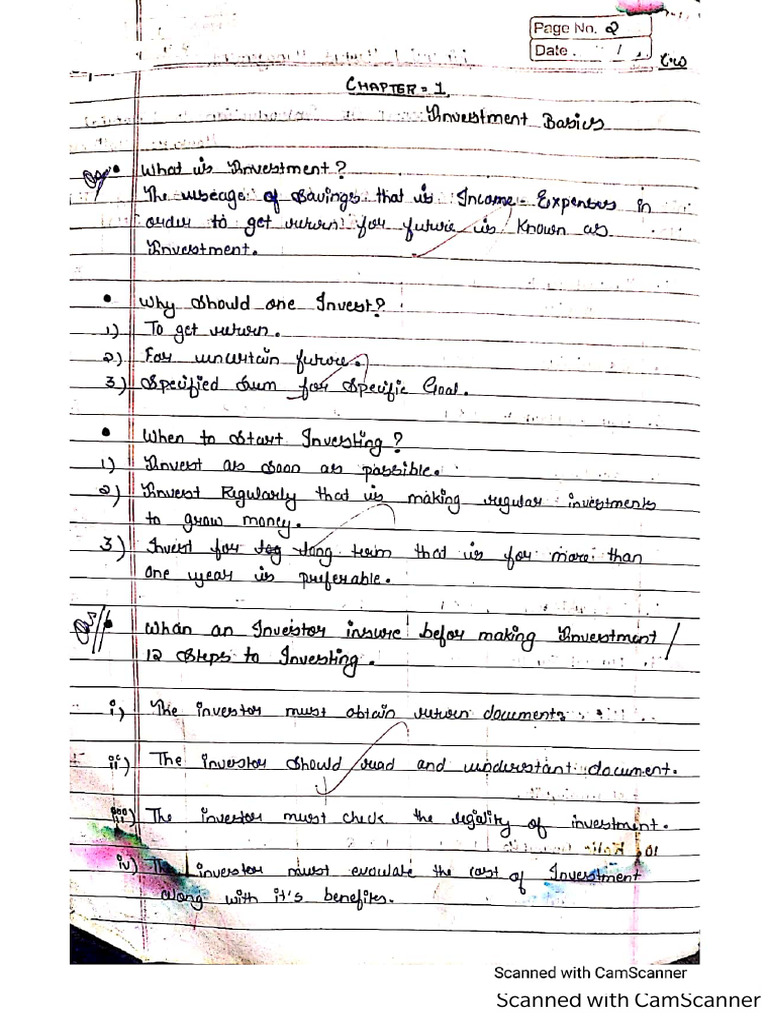 Page No. 2
Date.
CHAPTER = 1
Investment Basics
• What is Investment?
The useage of Savings that is Income - Expenses in
order to get return for future is known as
Investment.
• Why Should one Invest?
1) To get return.
2) For uncertain future.
3) Specified Sum for Specific Goal.
• When to Start Investing?
1) Invest as Soon as possible.
2) Invest Regularly that is making regular investments
to grow money.
3) Invest for long term that is for more than
one year is preferable.
• Whan an Investor insure befor making Investment /
12 Steps to Investing.
i) The investor must obtain return documents
ii) The investor should read and understant document.
iii) The investor must check the legality of investment.
iv) The investor must evaulate the cost of Investment
along with it's benefits.
Scanned with CamScanner
Scanned with CamScanner